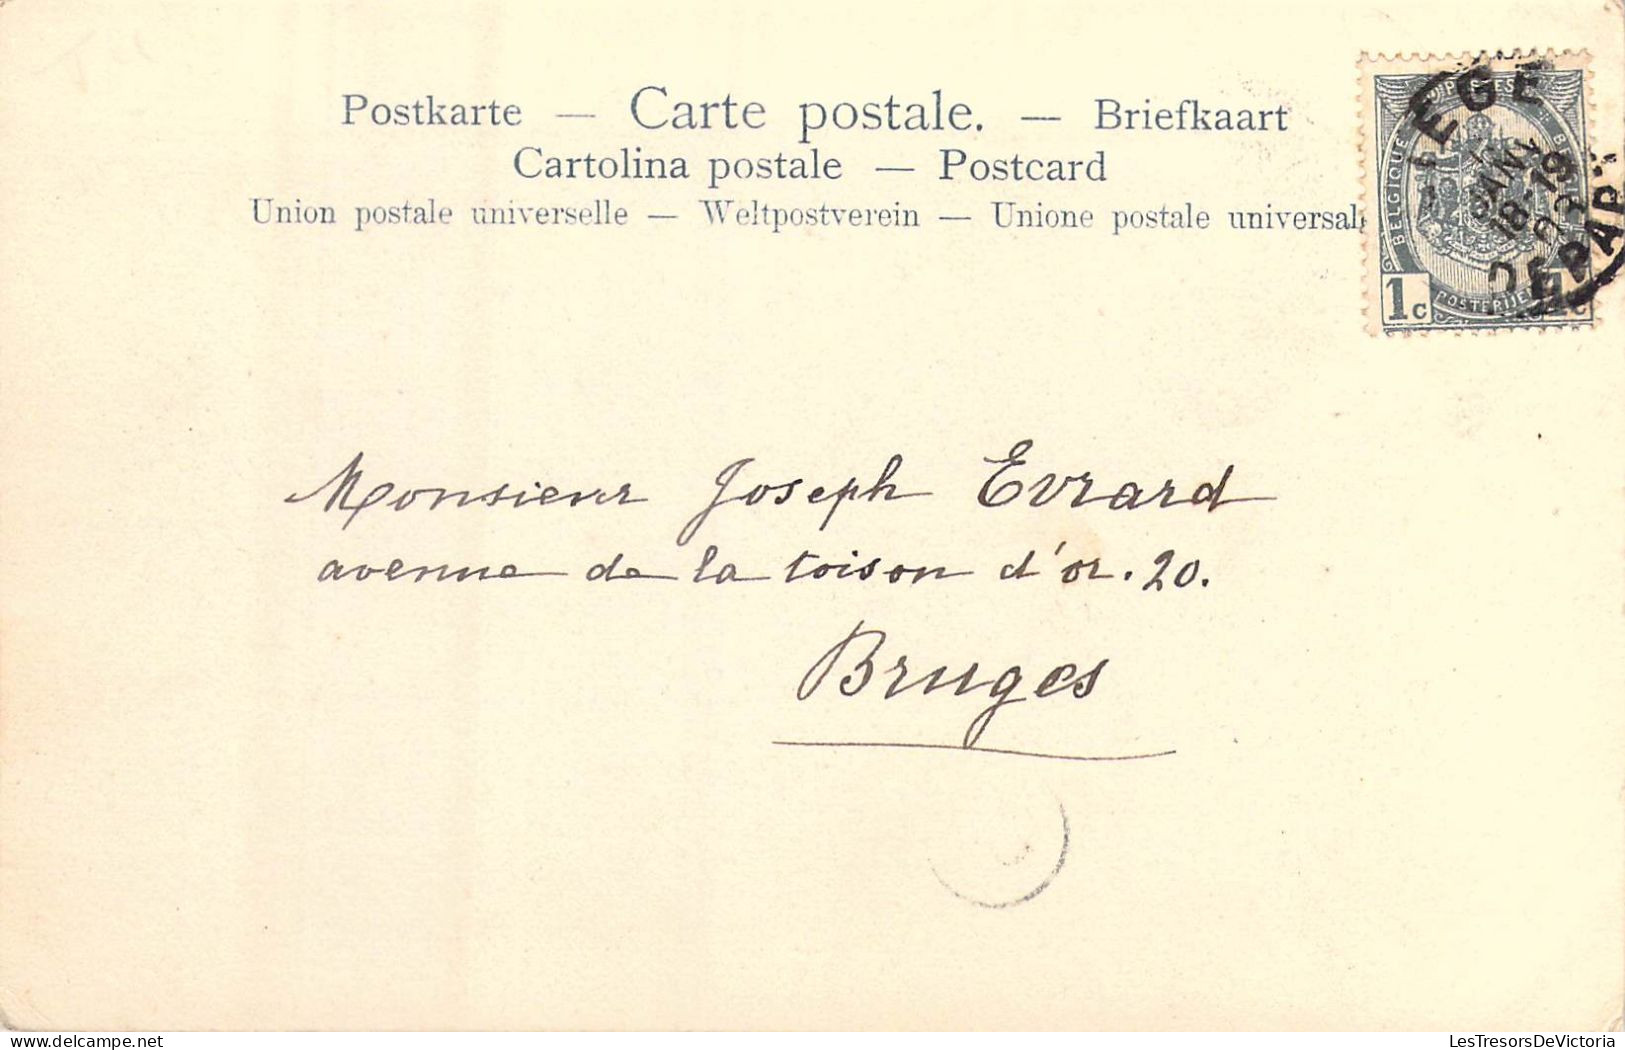 Postkarte — Carte postale. — Briefkaart
Cartolina postale — Postcard
Union postale universelle — Weltpostverein — Unione postale universal
POSTES
BELGIQUE
1c
POSTERIJEN
EGE
JANV
18-19
DEPART
Monsieur Joseph Evrard
avenue de la toison d'or. 20.
Bruges
LesTresorsDeVictoria
delcampe.net